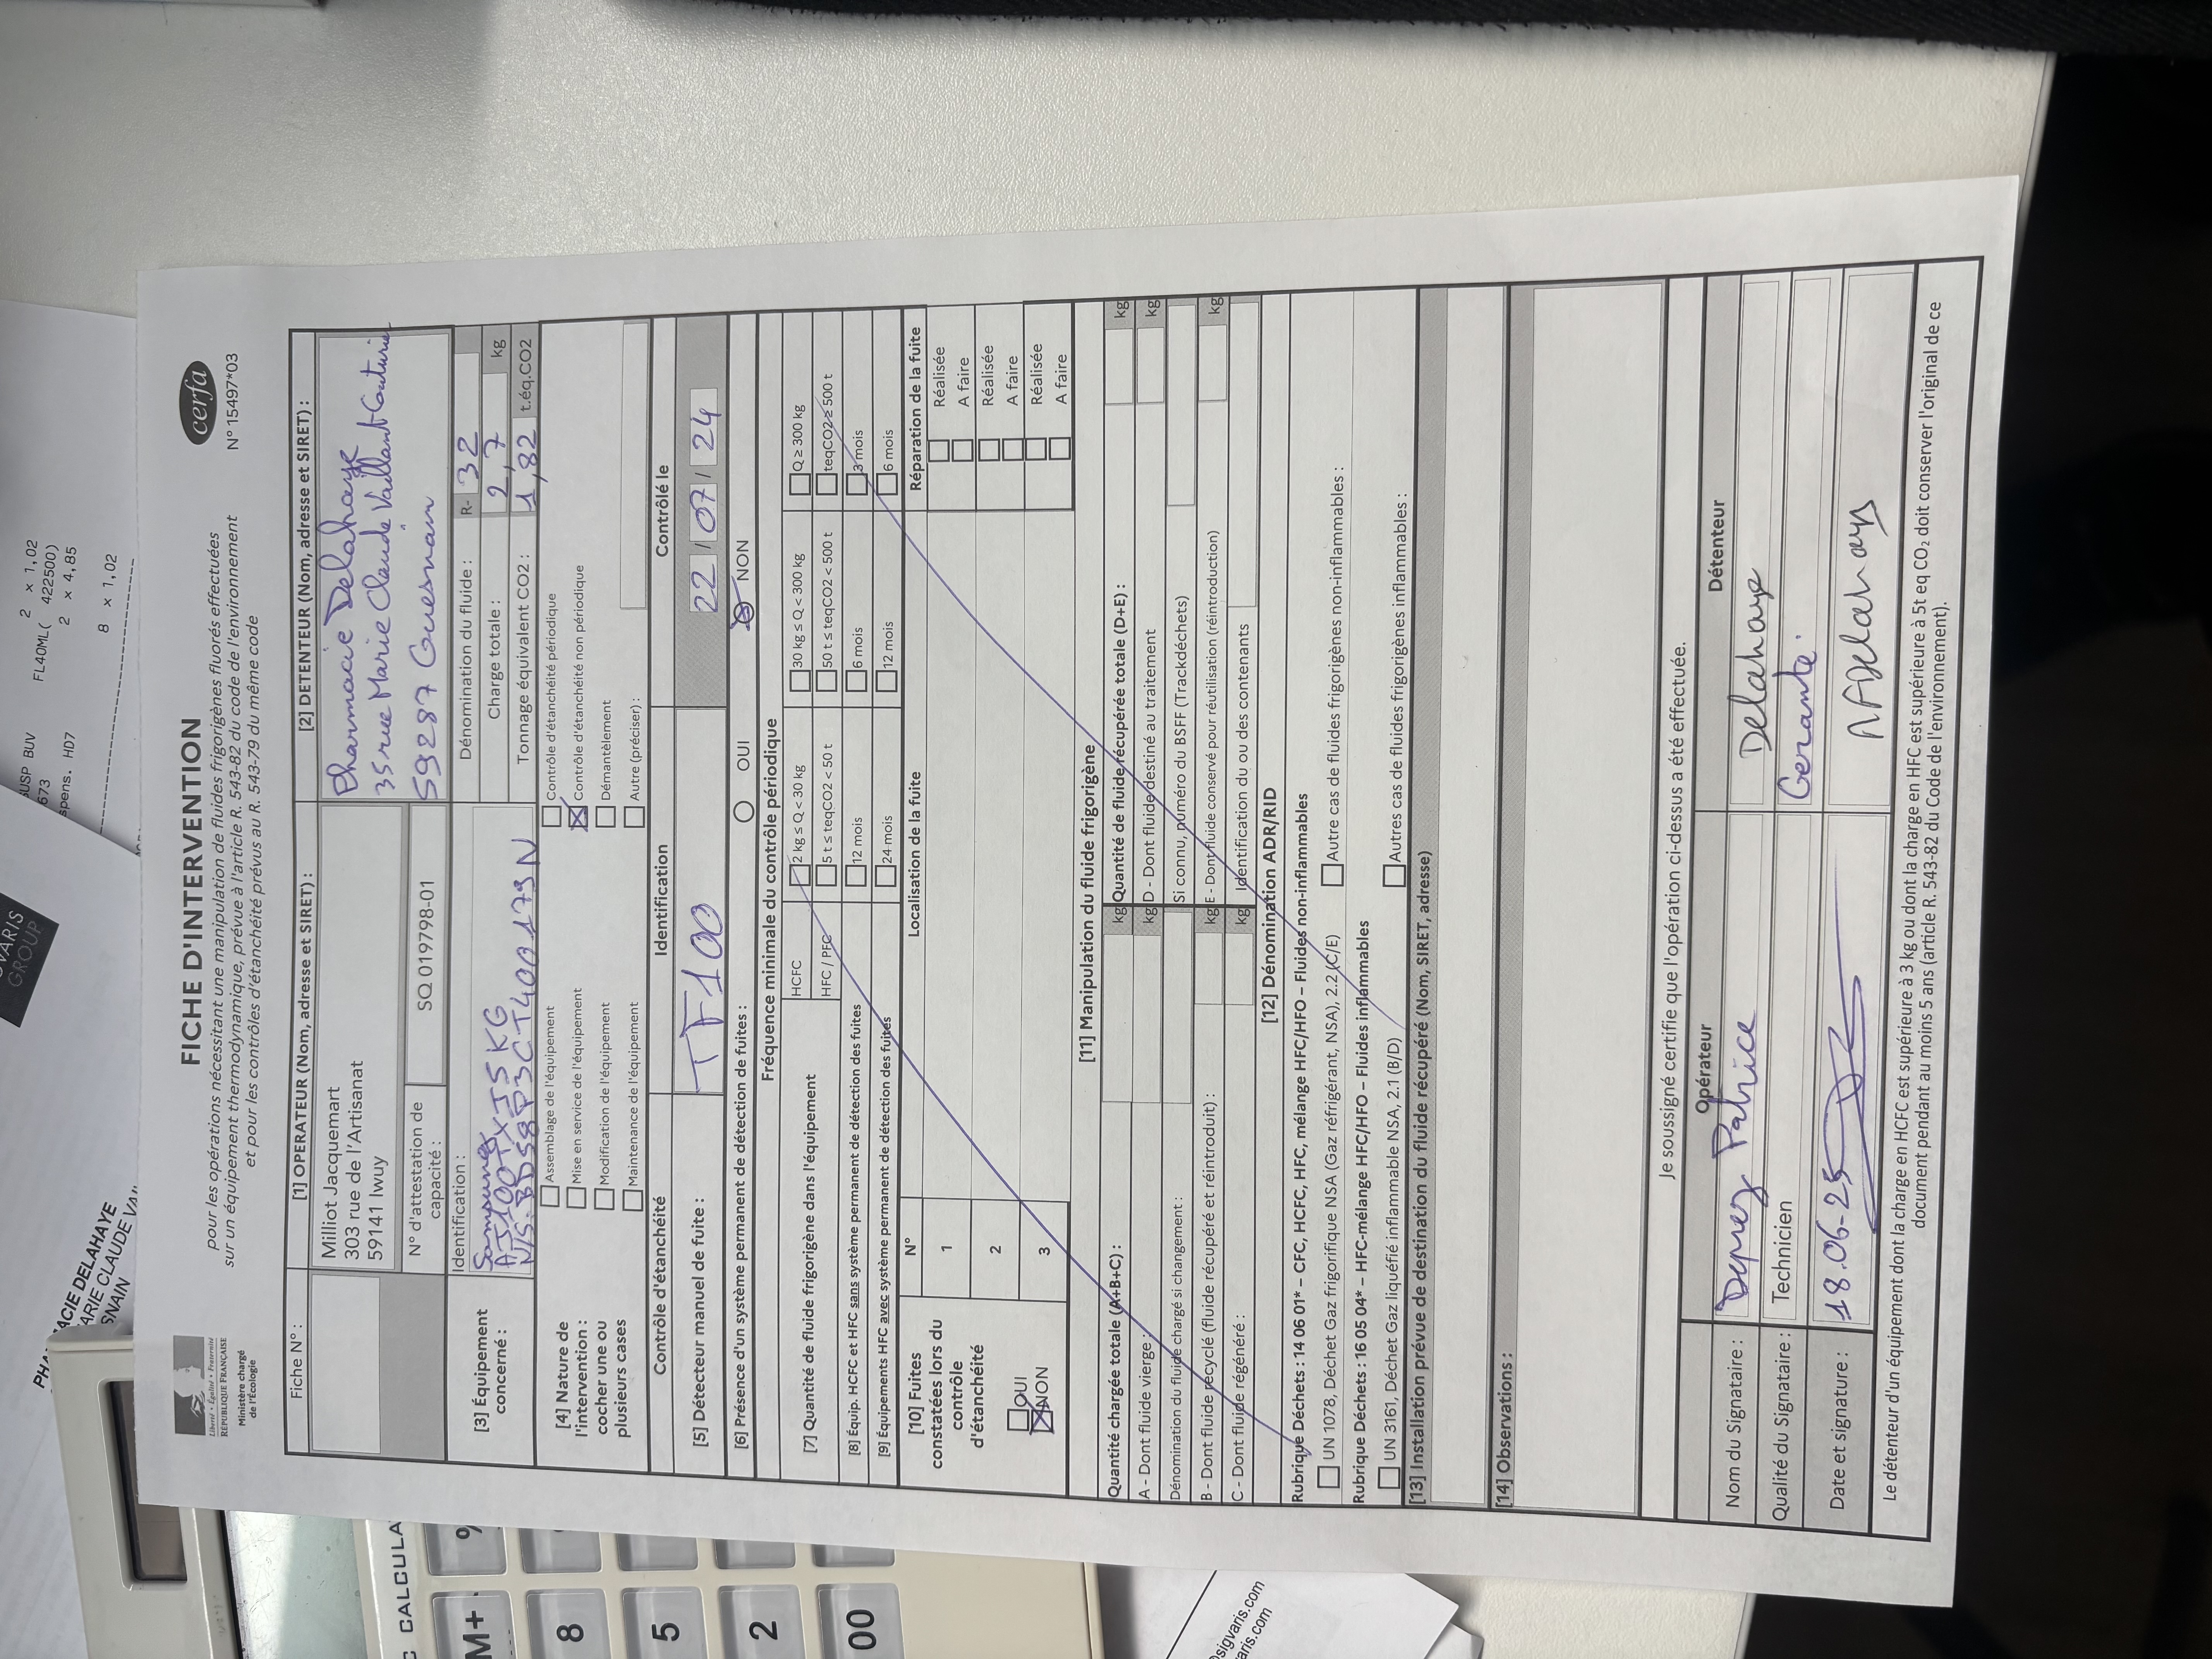 FICHE D'INTERVENTION
cerfa
N° 15497*03
Liberté • Égalité • Fraternité
RÉPUBLIQUE FRANÇAISE
Ministère chargé
de l'Écologie
pour les opérations nécessitant une manipulation de fluides frigorigènes fluorés effectuées
sur un équipement thermodynamique, prévue à l'article R. 543-82 du code de l'environnement
et pour les contrôles d'étanchéité prévus au R. 543-79 du même code
Fiche N° :
[1] OPERATEUR (Nom, adresse et SIRET) :
Milliot Jacquemart
303 rue de l'Artisanat
59141 Iwuy
N° d'attestation de capacité :
SQ 019798-01
[2] DETENTEUR (Nom, adresse et SIRET) :
Pharmacie Delahaye
35 rue Marie Claude Vaillant Couturier
59287 Guesnain
[3] Équipement concerné :
Identification :
Samsung
AJ100TXJ5KG
N/S:
Dénomination du fluide : R- 32
Charge totale : 2,7 kg
Tonnage équivalent CO2 : 1,82 t.éq.CO2
[4] Nature de l'intervention : cocher une ou plusieurs cases
Assemblage de l'équipement
Mise en service de l'équipement
Modification de l'équipement
Maintenance de l'équipement
Contrôle d'étanchéité périodique
Contrôle d'étanchéité non périodique
Démantèlement
Autre (préciser) :
Contrôle d'étanchéité
Identification
Contrôlé le
[5] Détecteur manuel de fuite :
TF100
22 / 07 / 24
[6] Présence d'un système permanent de détection de fuites :
OUI
NON
Fréquence minimale du contrôle périodique
[7] Quantité de fluide frigorigène dans l'équipement
HCFC
2 kg ≤ Q < 30 kg
30 kg ≤ Q < 300 kg
Q ≥ 300 kg
HFC / PFC
5 t ≤ teqCO2 < 50 t
50 t ≤ teqCO2 < 500 t
teqCO2 ≥ 500 t
[8] Équip. HCFC et HFC sans système permanent de détection des fuites
12 mois
6 mois
3 mois
[9] Équipements HFC avec système permanent de détection des fuites
24 mois
12 mois
6 mois
[10] Fuites constatées lors du contrôle d'étanchéité
OUI
NON
N°
Localisation de la fuite
Réparation de la fuite
1
Réalisée
A faire
2
Réalisée
A faire
3
Réalisée
A faire
[11] Manipulation du fluide frigorigène
Quantité chargée totale (A+B+C) : kg
Quantité de fluide récupérée totale (D+E) : kg
A - Dont fluide vierge : kg
D - Dont fluide destiné au traitement kg
Dénomination du fluide chargé si changement :
Si connu, numéro du BSFF (Trackdéchets)
B - Dont fluide recyclé (fluide récupéré et réintroduit) : kg
E - Dont fluide conservé pour réutilisation (réintroduction) kg
C - Dont fluide régénéré : kg
Identification du ou des contenants
[12] Dénomination ADR/RID
Rubrique Déchets : 14 06 01* – CFC, HCFC, HFC, mélange HFC/HFO – Fluides non-inflammables
UN 1078, Déchet Gaz frigorifique NSA (Gaz réfrigérant, NSA), 2.2 (C/E)
Autre cas de fluides frigorigènes non-inflammables :
Rubrique Déchets : 16 05 04* – HFC-mélange HFC/HFO – Fluides inflammables
UN 3161, Déchet Gaz liquéfié inflammable NSA, 2.1 (B/D)
Autres cas de fluides frigorigènes inflammables :
[13] Installation prévue de destination du fluide récupéré (Nom, SIRET, adresse)
[14] Observations :
Je soussigné certifie que l'opération ci-dessus a été effectuée.
Opérateur
Détenteur
Nom du Signataire :
Deprez Patrice
Delahaye
Qualité du Signataire :
Technicien
Gérante
Date et signature :
18.06-25
Delahaye
Le détenteur d'un équipement dont la charge en HCFC est supérieure à 3 kg ou dont la charge en HFC est supérieure à 5t eq CO₂ doit conserver l'original de ce
document pendant au moins 5 ans (article R. 543-82 du Code de l'environnement).
VARIS
GROUP
SUSP BUV
FL40ML( 2 x 1,02
422500)
673
2 x 4,85
spens. HD7
8 x 1,02
ACIE DELAHAYE
ARIE CLAUDE VA
SNAIN
CALCULA
%
M+
8
5
2
00
sigvaris.com
aris.com